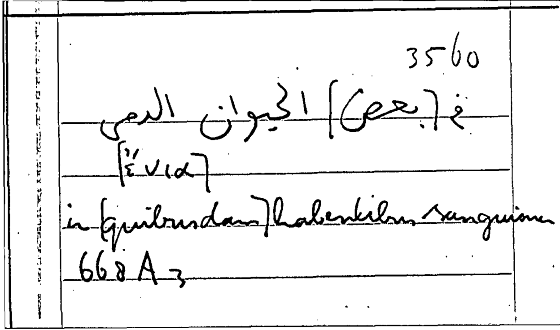 3560
في [بعض] الحيوان الدمى
[ἔνια]
in [quibusdam] habentibus sanguinem
668 A 3